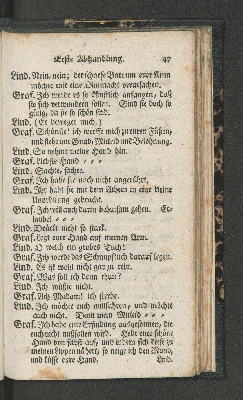 Erste Abhandlung. 47
Lind. Nein, nein; der scharfe Batrum eurer Arm
möchte mir eine Ohnmacht verursachen.
Graf. Ich werde es so künstlich anfangen, daß
sie sich verwundern sollen. Sind sie doch so
gütig, da sie so schön sind.
Lind. (Er beweget mich.)
Graf. Schönste! ich werffe mich zu euren Füßen,
und flehe um Gnad, Mitleid und Belohnung.
Lind. So nehmt meine Hand hin.
Graf. Liebste Hand • • •
Lind. Sachte, sachte.
Graf. Ich habe sie noch nicht angerührt.
Lind. Ihr habt sie mit dem Athem in eine kleine
Unordnung gebracht.
Graf. Ich will auch darin behutsam gehen. Er-
laubet • • •
Lind. Drückt nicht so stark.
Graf. Legt eure Hand auf meinen Arm.
Lind. O welch ein grobes Tuch!
Graf. Ich werde das Schnupftuch darauf legen.
Lind. Es ist wohl nicht gar zu rein.
Graf. Was soll ich denn thun?
Lind. Ich wüßte nicht.
Graf. Ach Madam! ich sterbe.
Lind. Ich möchte euch willfahren, und möchte
auch nicht. Denn mein Mitleid • • •
Graf. Ich habe eine Erfindung ausgesonnen, die
euch nicht mißfallen wird. Hebt eure schöne
Hand von selbst auf, und indem sich diese zu
meinen Lippen nähert, so neige ich den Mund,
und küsse eure Hand. Lind.